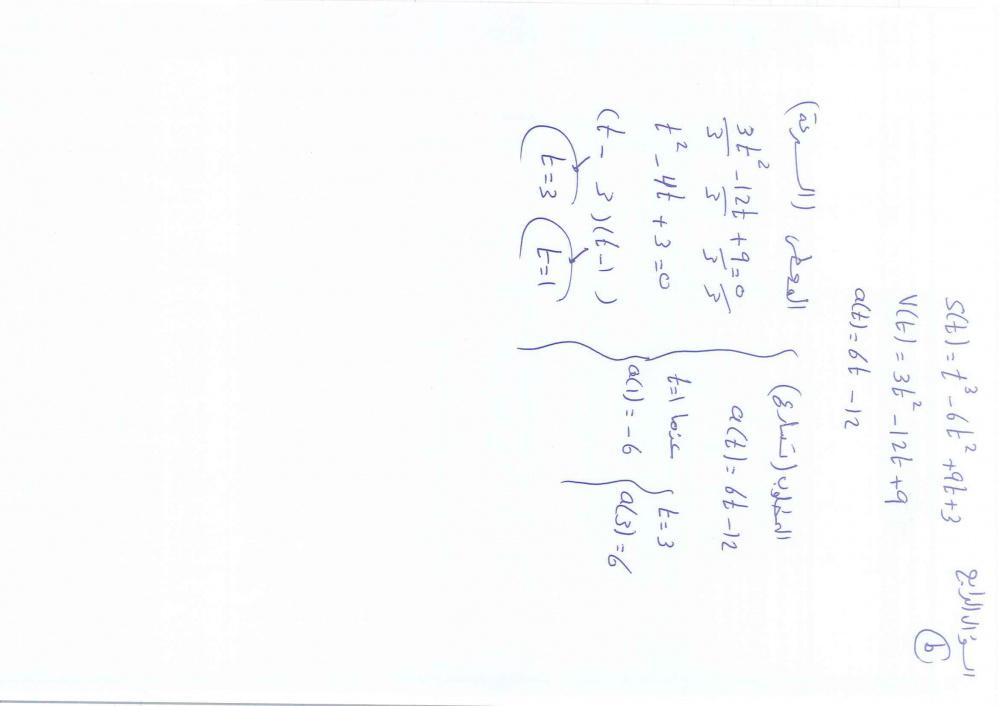 السؤال الرابع
b
S(t) = t³ - 6t² + 9t + 3
V(t) = 3t² - 12t + 9
a(t) = 6t - 12
المعطى (السرعة)
3t²/3 - 12t/3 + 9/3 = 0/3
t² - 4t + 3 = 0
(t - 3)(t - 1)
t = 3 t = 1
المطلوب (تسارع)
a(t) = 6t - 12
عندما t = 1
a(1) = -6
t = 3
a(3) = 6